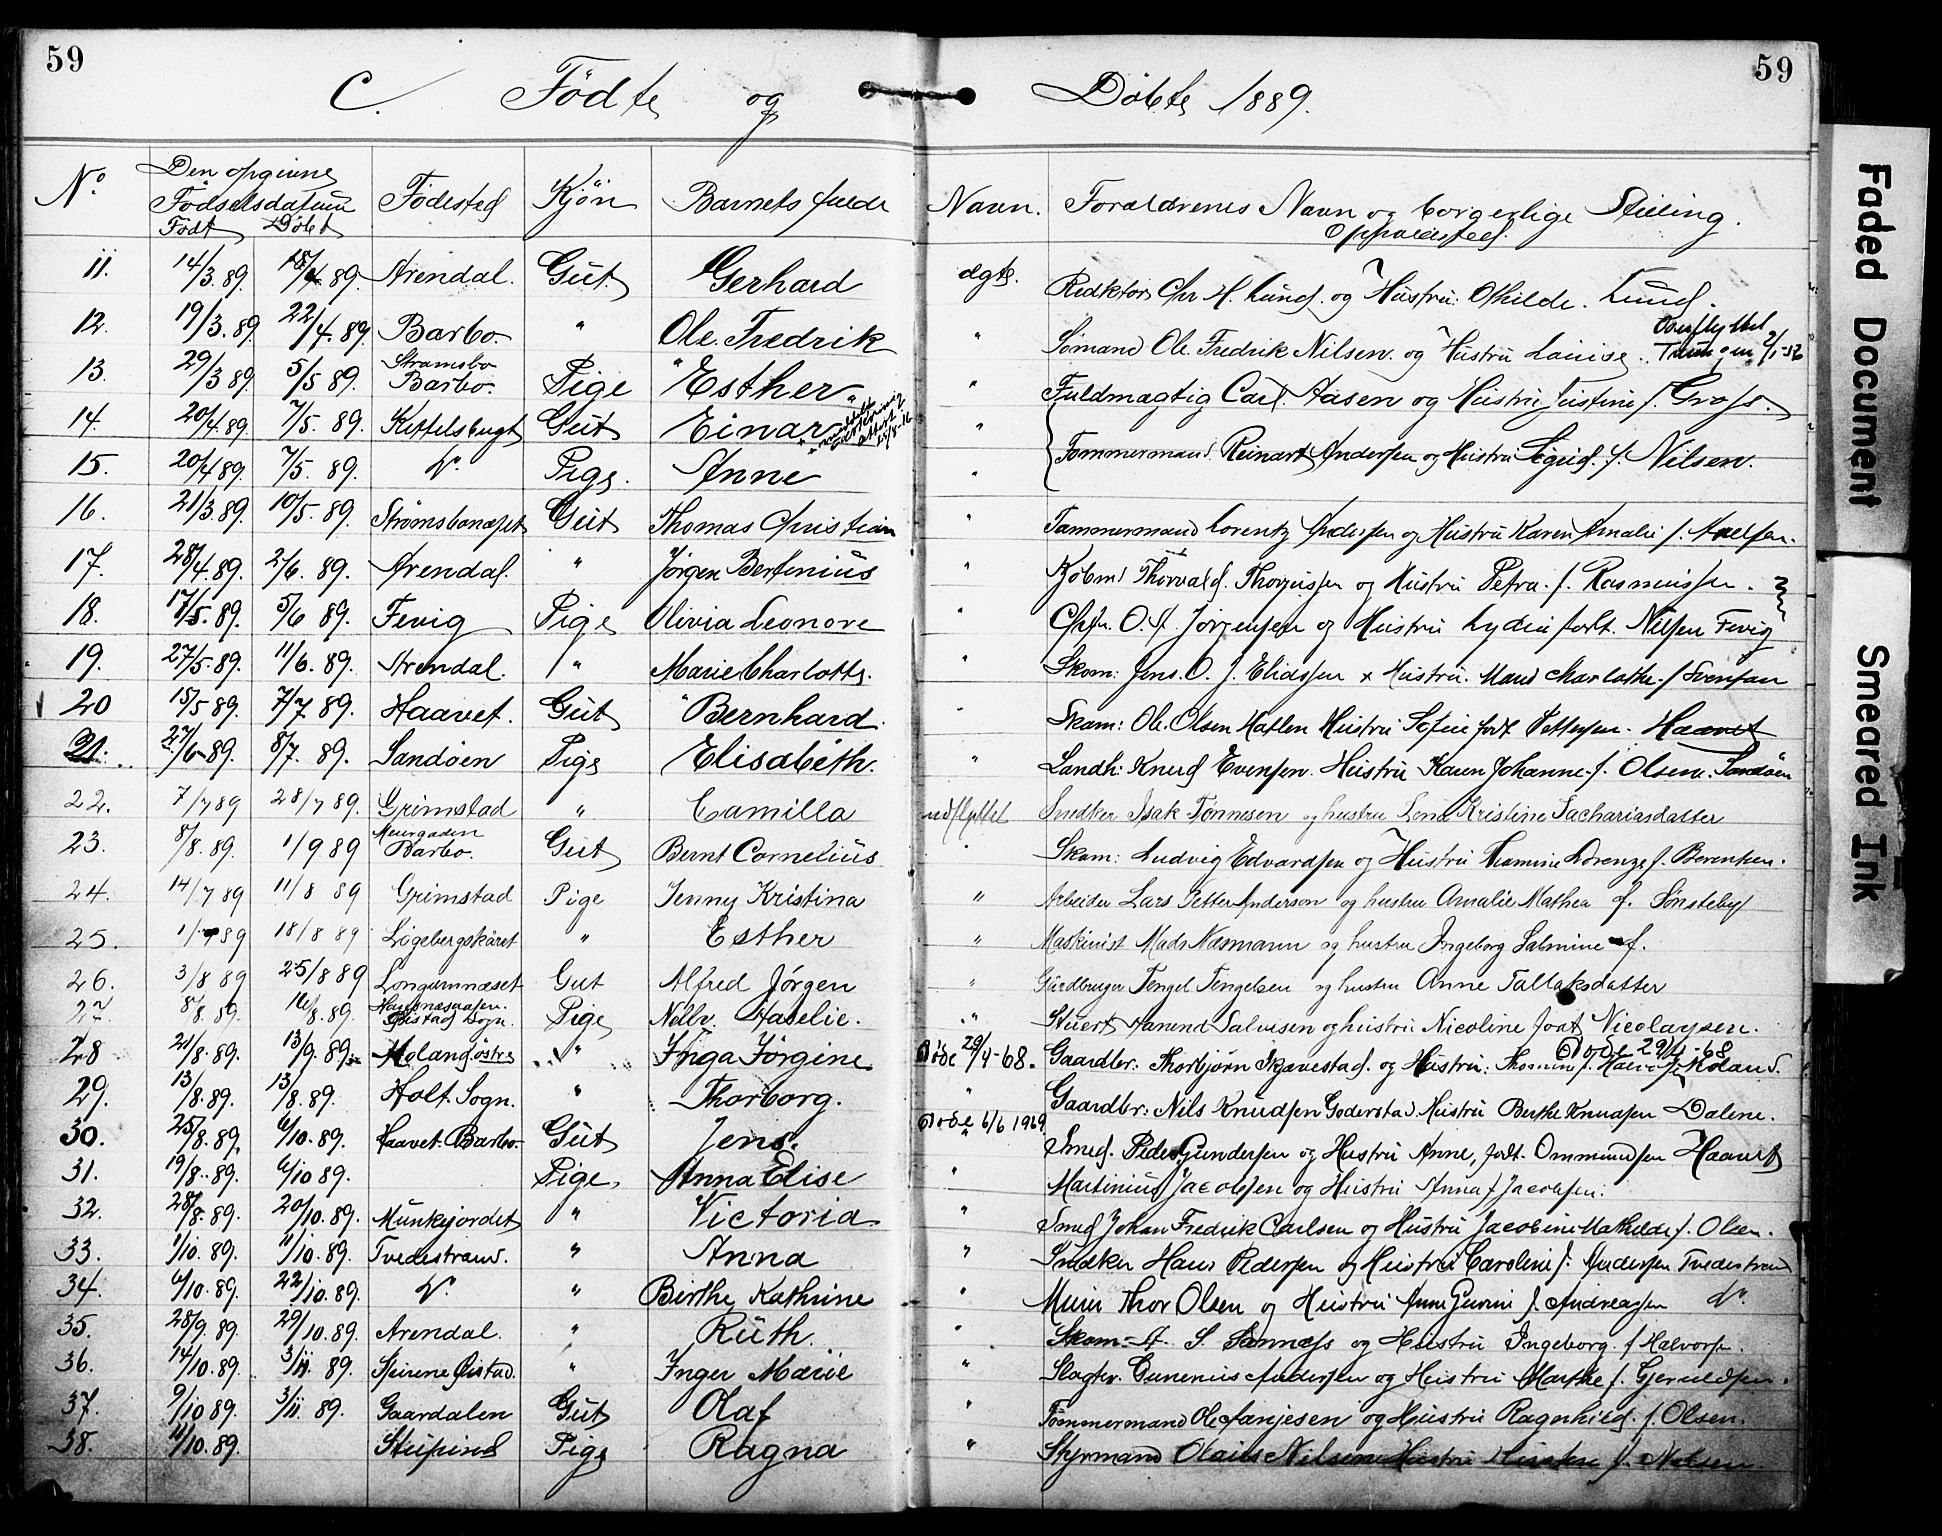 59 59
C. Fødte og Døbte 1889.
No. Den opgivne Fødselsdatum Født Døbt Fødested Kjøn Barnets fulde Navn. Forældrenes Navn og borgerlige Stilling. Opholdssted.
11. 14/3 89. 18/4 89. Arendal. Gut Gerhard ægte. Redktør Chr H. Lund. og Hustru: Othilde. Lund.
12. 19/3. 89. 22/4. 89. Barbo. " Ole. Fredrik " Sømand Ole Fredrik Nilsen. og Hustru Louise. Overflyttet
13. 29/3 89. 5/5 89. Strømsbo Barbo. Pige "Esther" " Fuldmægtig Carl. Aasen og Hustru Justine f. Gross.
14. 20/4 89. 7/5. 89. Kittelsbugt Gut Einar "
15. 20/4 89. 7/5 89. Do. Pige. Anne " Tømmermand Reinart Andersen og Hustru Sigrid. f. Nilsen.
16. 21/3 89. 10/5. 89. Strømsbonæset Gut Thomas Christian " Tømmermand Lorentz Andersen og Hustru Karen Amalie f.
17. 28/4. 89. 2/6. 89. Arendal. " Jørgen Bertinius " Kjøbmd Thorvald. og Hustru Petra. f. Rasmussen.
18. 17/5. 89. 5/6 89. Fevig Pige Olivia Leonore " O. A. Jørgensen og Hustru Lydia født. Nilsen Fevig
19. 27/5. 89. 11/6. 89. Arendal. " Marie Charlotte. " Skom: Jens. O. J. Elidssen x Hustru. Marie Charlothe. f Svensen
20 15/5 89. 7/7 89. Haavet. Gut "Bernhard. " Skom: Ole. Olsen Hatlen Hustru Sofie født Pettersen. Haavet
21. 27/6 89. 8/7. 89. Sandøen Pige Elisabeth. " Landh: Knud Evensen. Hustru Karen Johanne. f. Olsen. Sandøen
22. 7/7 89 28/7 89. Grimstad " Camilla udflyttet Snedker Isak Tønnesen og hustru Lena Kristine Sachariasdatter
23. 8/8. 89. 1/9 89 Neurgaden Barbo. Gut Bernt Cornelius " Skom: Ludvig Edvardsen og Hustru Lorenze f. Berentsen.
24. 14/7 89 11/8 89 Grimstad Pige Jenny Kristina " Arbeider Lars Petter Anderson og hustru Amalie Mathea f. Sønsteby
25. 1/7 89 18/8 89 Løgebergskåret " Esther " Maskinist Mads Næsmann og hustru Ingeborg Salmine f.
26. 3/8 89 25/8 89 Longumnæset Gut Alfred Jörgen " Gårdbruger Tengel Tengelsen og hustru Anne Tallaksdatter
27. 8/8. 89. 16/8. 89. Øiestad Sogn. Pige Nelly. Hatelie. " Stuert Aanend Salvesen og hustru Nicoline født Nicolaysen.
28 21/8. 89. 13/9. 89. Moland østre " Inga Jørgine Døde 29/4-68. Gaardbr: Thorbjørn Skjævestad. og Hustru: Moland.
29. 13/8. 89. 13/8. 89. Holt. Sogn. " Thorborg. " Gaardbr: Nils Knudsen Goderstad Hustru Berthe Knudsen Dalene.
30. 25/8. 89. 6/10. 89. Haavet. Barbo. Gut Jens. Døde 6/6 1969 Smed. Peder Gundersen og Hustru Anne, født. Ommundsen Haavet
31. 19/8. 89. 6/10 89. Pige. Anna Elise " Martinius Jacobsen og Hustru Anna f Jacobsen.
32. 28/8. 89. 20/10. 89. Munkejordet " Victoria. " Smed Johan Fredrik Carlsen og Hustru Jacobine Mathilde f. Olsen.
33. 1/10. 89. 11/10. 89. Tvedestrand. " Anna " Snedker Hans Pedersen og Hustru Caroline f. Andersen Tvedestrand
34. 6/10. 89. 22/10. 89. Do. " Birthe Kathrine " Murer Thor Olsen og Hustru Anne f. Andreassen Do.
35. 28/9. 89. 29/10. 89. Arendal. " Ruth. " Skom: A. S. Sannæss og Hustru Ingeborg. f Halvorsen.
36. 14/10. 89. 3/11. 89. Øistad. " Inger Marie " Slagter. Gunerius Andersen og Hustru Marthe f.
37. 9/10 89. 3/11. 89. Gaardalen Gut Olaf " Tømmermand Ole og Hustru Ragnhild. f. Olsen.
38. 11/10. 89. Pige Ragna " Styrmand Nilsen Hustru f. Nilsen.
Faded Document
Smeared Ink